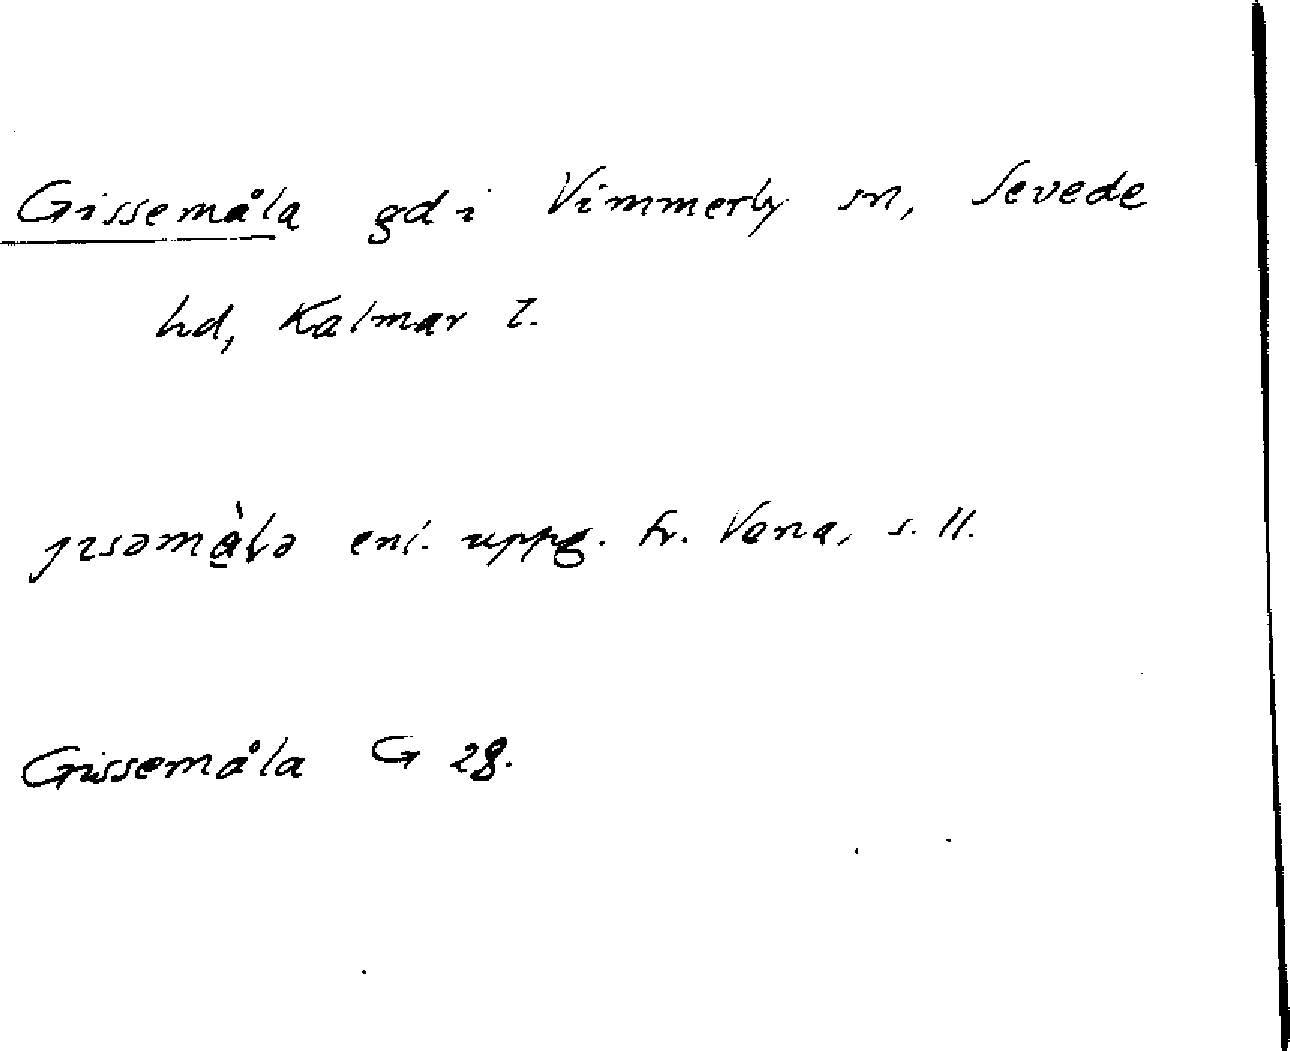 Gissemåla gd i Vimmerby sn, Sevede
hd, Kalmar l.
jɪsəmå̀lə enl. uppg. fr. Vena, s. 11.
Gissemåla G 28.